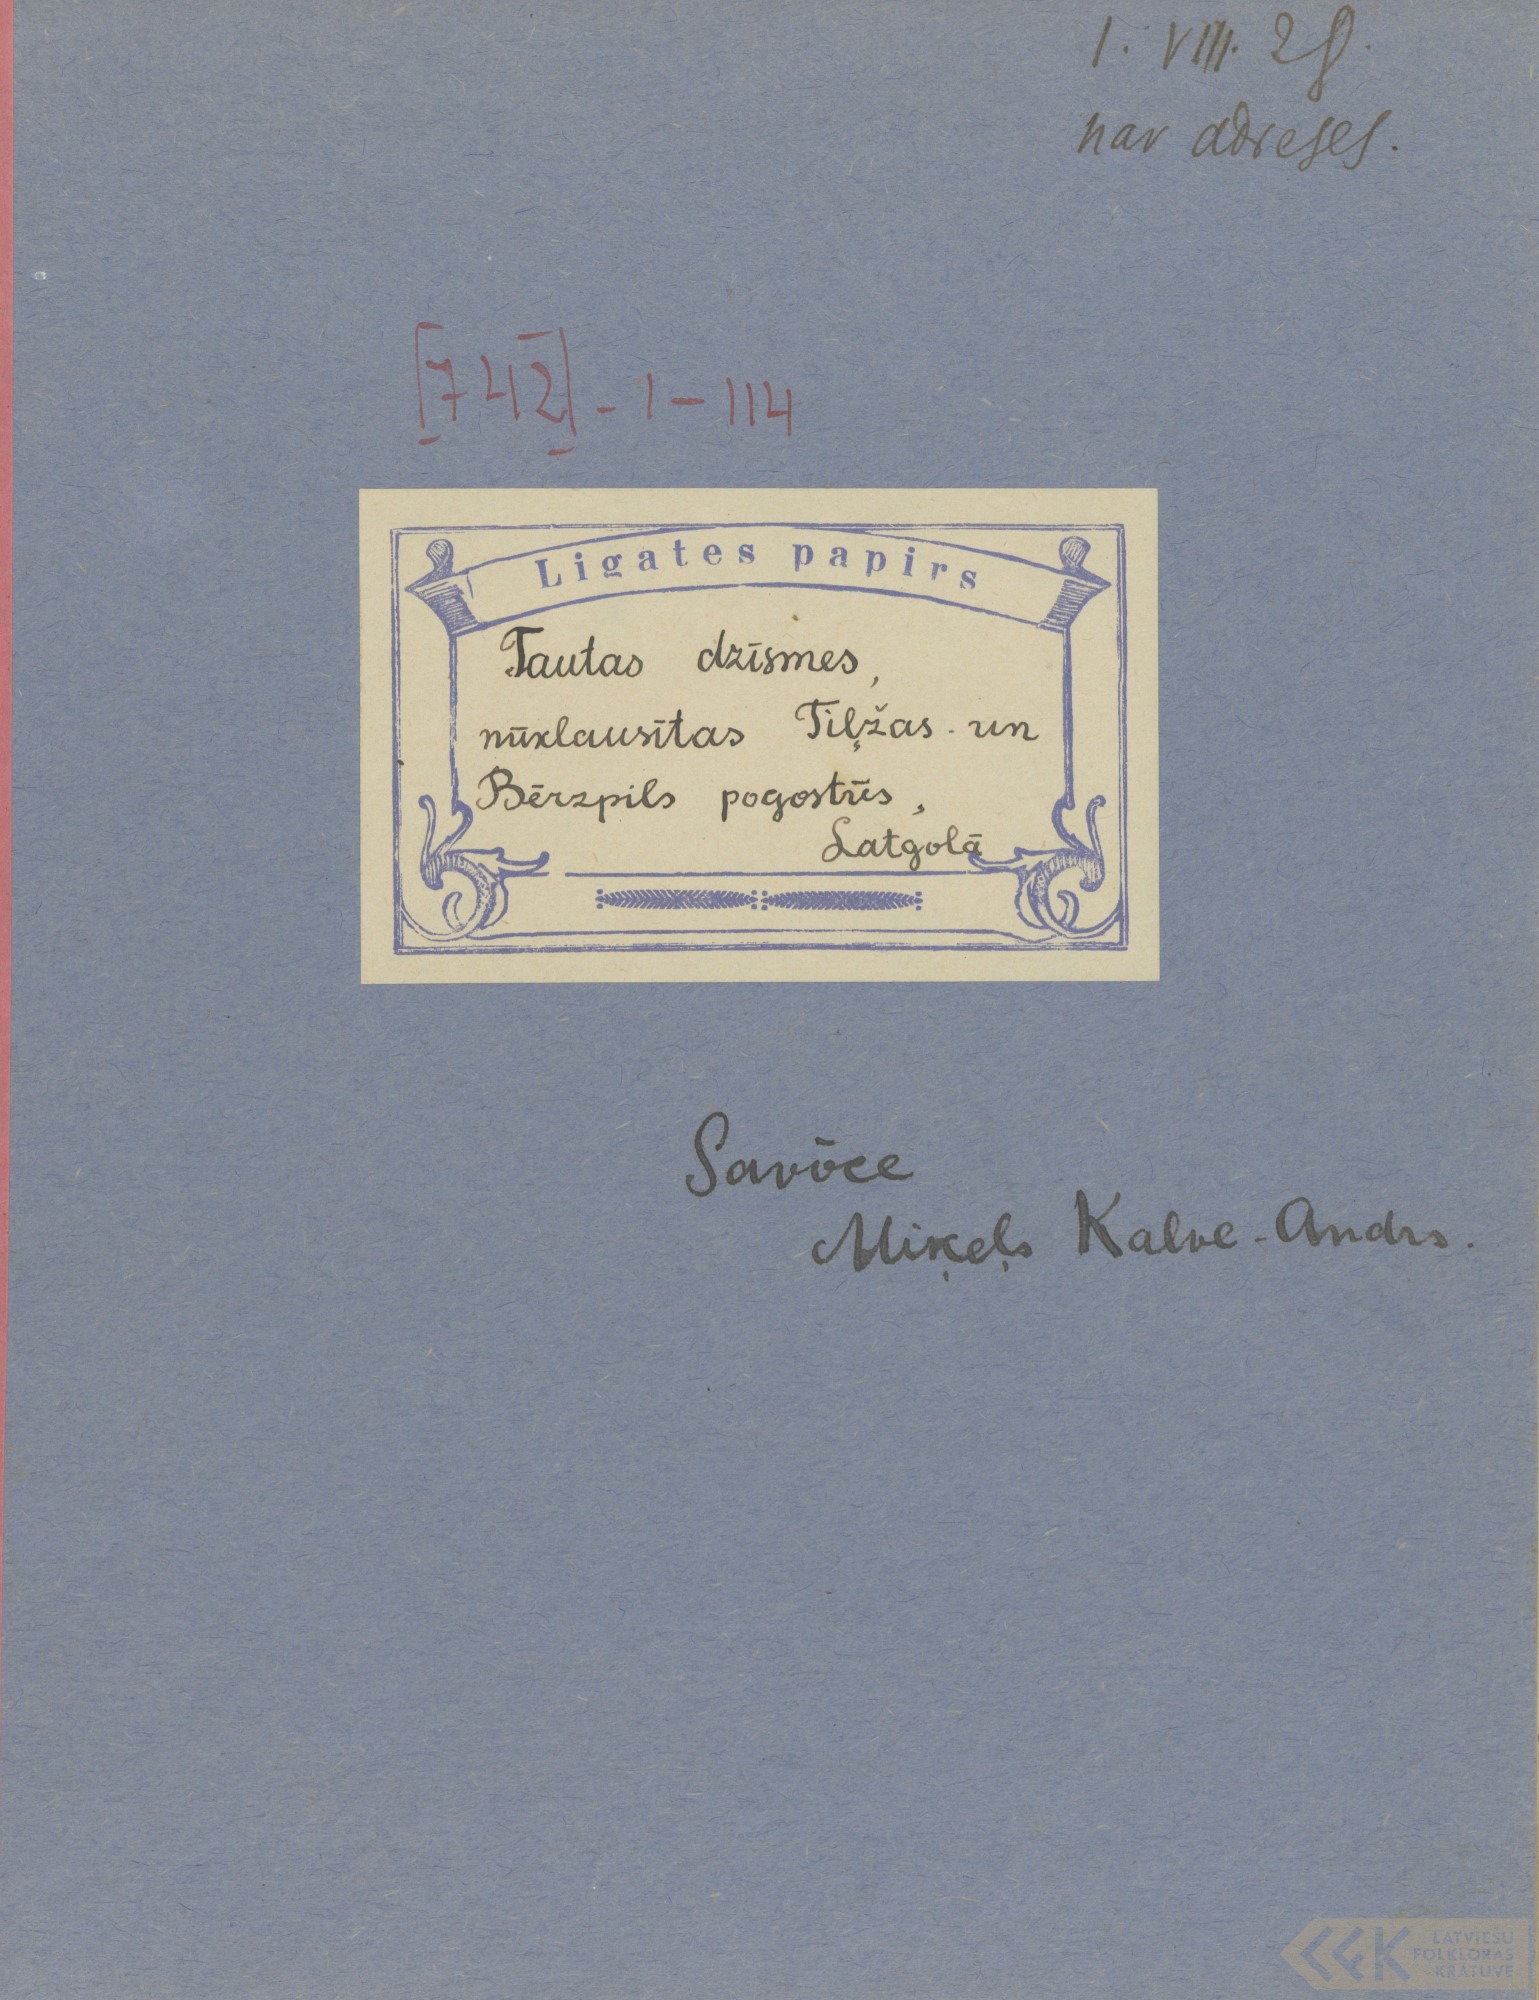 1. VIII. 28.
nav adreses.
[742] - 1 - 114
Ligates papirs
Tautas dzīsmes,
nūklausītas Tiļžas un
Bērzpils pogostūs,
Latgolā
Savōce
Miķeļs Kalve-Andrs.
LATVIEŠU
FOLKLORAS
KRĀTUVE